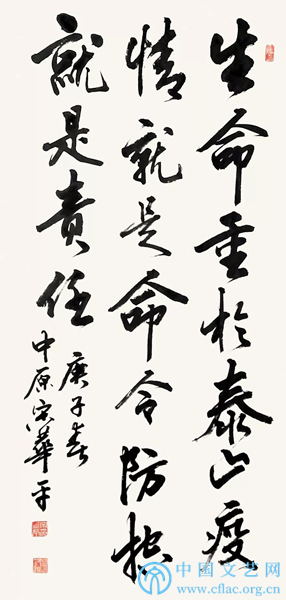 生命重於泰山疫
情就是命令防控
就是責任
庚子春
中原宋華平
中国文艺网
www.cflac.org.cn